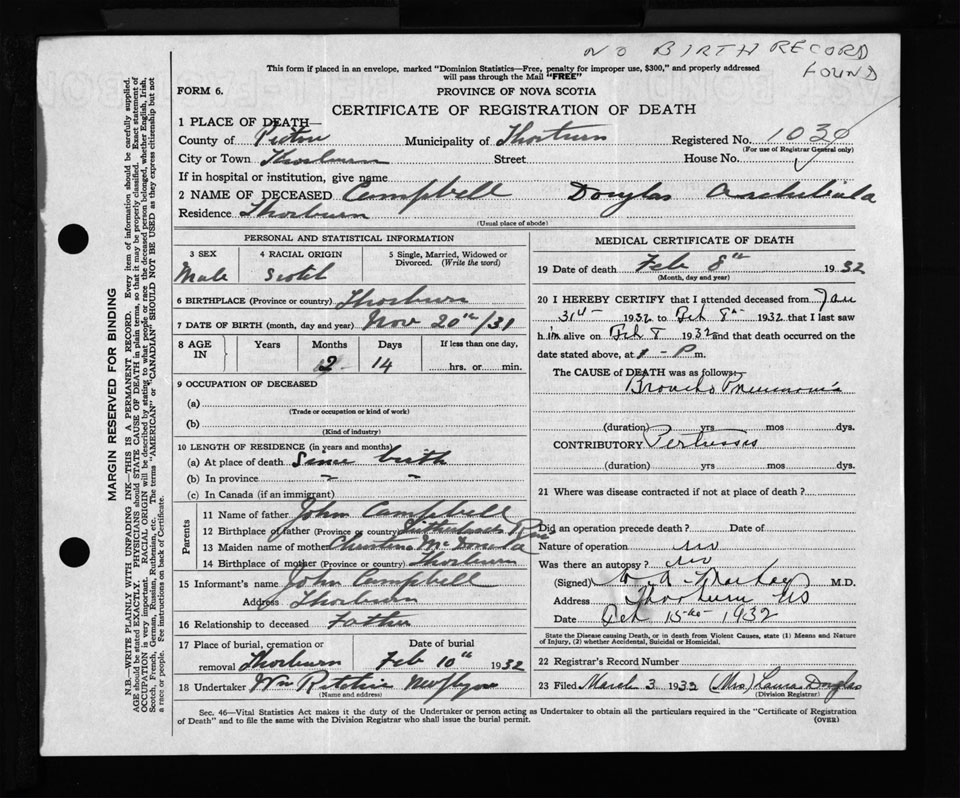 NO BIRTH RECORD
FOUND
This form if placed in an envelope, marked "Dominion Statistics—Free, penalty for improper use, $300," and properly addressed
will pass through the Mail "FREE"
FORM 6. PROVINCE OF NOVA SCOTIA
CERTIFICATE OF REGISTRATION OF DEATH
1 PLACE OF DEATH—
County of Pictou Municipality of Thorburn Registered No. 1034
(For use of Registrar General only)
City or Town Thorburn Street House No.
If in hospital or institution, give name
2 NAME OF DECEASED Campbell Douglas Archibald
Residence Thorburn
(Usual place of abode)
PERSONAL AND STATISTICAL INFORMATION
3 SEX 4 RACIAL ORIGIN 5 Single, Married, Widowed or
Divorced. (Write the word)
Male Scotch
6 BIRTHPLACE (Province or country) Thorburn
7 DATE OF BIRTH (month, day and year) Nov 20th/31
8 AGE IN Years Months Days If less than one day,
2 14 hrs. or min.
9 OCCUPATION OF DECEASED
(a)
(Trade or occupation or kind of work)
(b)
(Kind of industry)
10 LENGTH OF RESIDENCE (in years and months)
(a) At place of death Since birth
(b) In province " "
(c) In Canada (if an immigrant)
Parents
11 Name of father John Campbell
12 Birthplace of father (Province or country) Sutherlands River
13 Maiden name of mother Christina McDonald
14 Birthplace of mother (Province or country) Thorburn
15 Informant's name John Campbell
Address Thorburn
16 Relationship to deceased Father
17 Place of burial, cremation or Date of burial
removal Thorburn Feb 10th 1932
18 Undertaker Wm Ritchie New Glasgow
(Name and address)
MEDICAL CERTIFICATE OF DEATH
19 Date of death Feb 8th 1932
(Month, day and year)
20 I HEREBY CERTIFY that I attended deceased from Jan
31st 1932 to Feb 8th 1932 that I last saw
him alive on Feb 8 1932 and that death occurred on the
date stated above, at P m.
The CAUSE of DEATH was as follows:
Broncho Pneumonia
(duration) yrs mos. dys.
CONTRIBUTORY Pertussis
(duration) yrs mos. dys.
21 Where was disease contracted if not at place of death?
Did an operation precede death? Date of
Nature of operation no
Was there an autopsy? no
(Signed) M.D.
Address Thorburn NS
Date 15th 1932
State the Disease causing Death, or in death from Violent Causes, state (1) Means and Nature
of Injury, (2) whether Accidental, Suicidal or Homicidal.
22 Registrar's Record Number
23 Filed March 3 1932 (Mrs) Laura Douglas
(Division Registrar)
Sec. 46—Vital Statistics Act makes it the duty of the Undertaker or person acting as Undertaker to obtain all the particulars required in the "Certificate of Registration
of Death" and to file the same with the Division Registrar who shall issue the burial permit. (OVER)
MARGIN RESERVED FOR BINDING
N.B.—WRITE PLAINLY WITH UNFADING INK—THIS IS A PERMANENT RECORD. Every item of information should be carefully supplied.
AGE should be stated EXACTLY. PHYSICIANS should STATE CAUSE OF DEATH in plain terms, so that it may be properly classified. Exact statement of
OCCUPATION is very important. RACIAL ORIGIN will be described by stating to what people or race the deceased person belonged, whether English, Irish,
Scotch, French, German, Russian, Ruthenian, etc. The terms "AMERICAN" or "CANADIAN" SHOULD NOT BE USED as they express citizenship but not
a race or people. See instructions on back of Certificate.